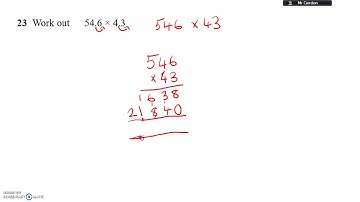 Mr Gordon
23 Work out 54.6 × 4.3 546 × 43
546
×43
1638
21840